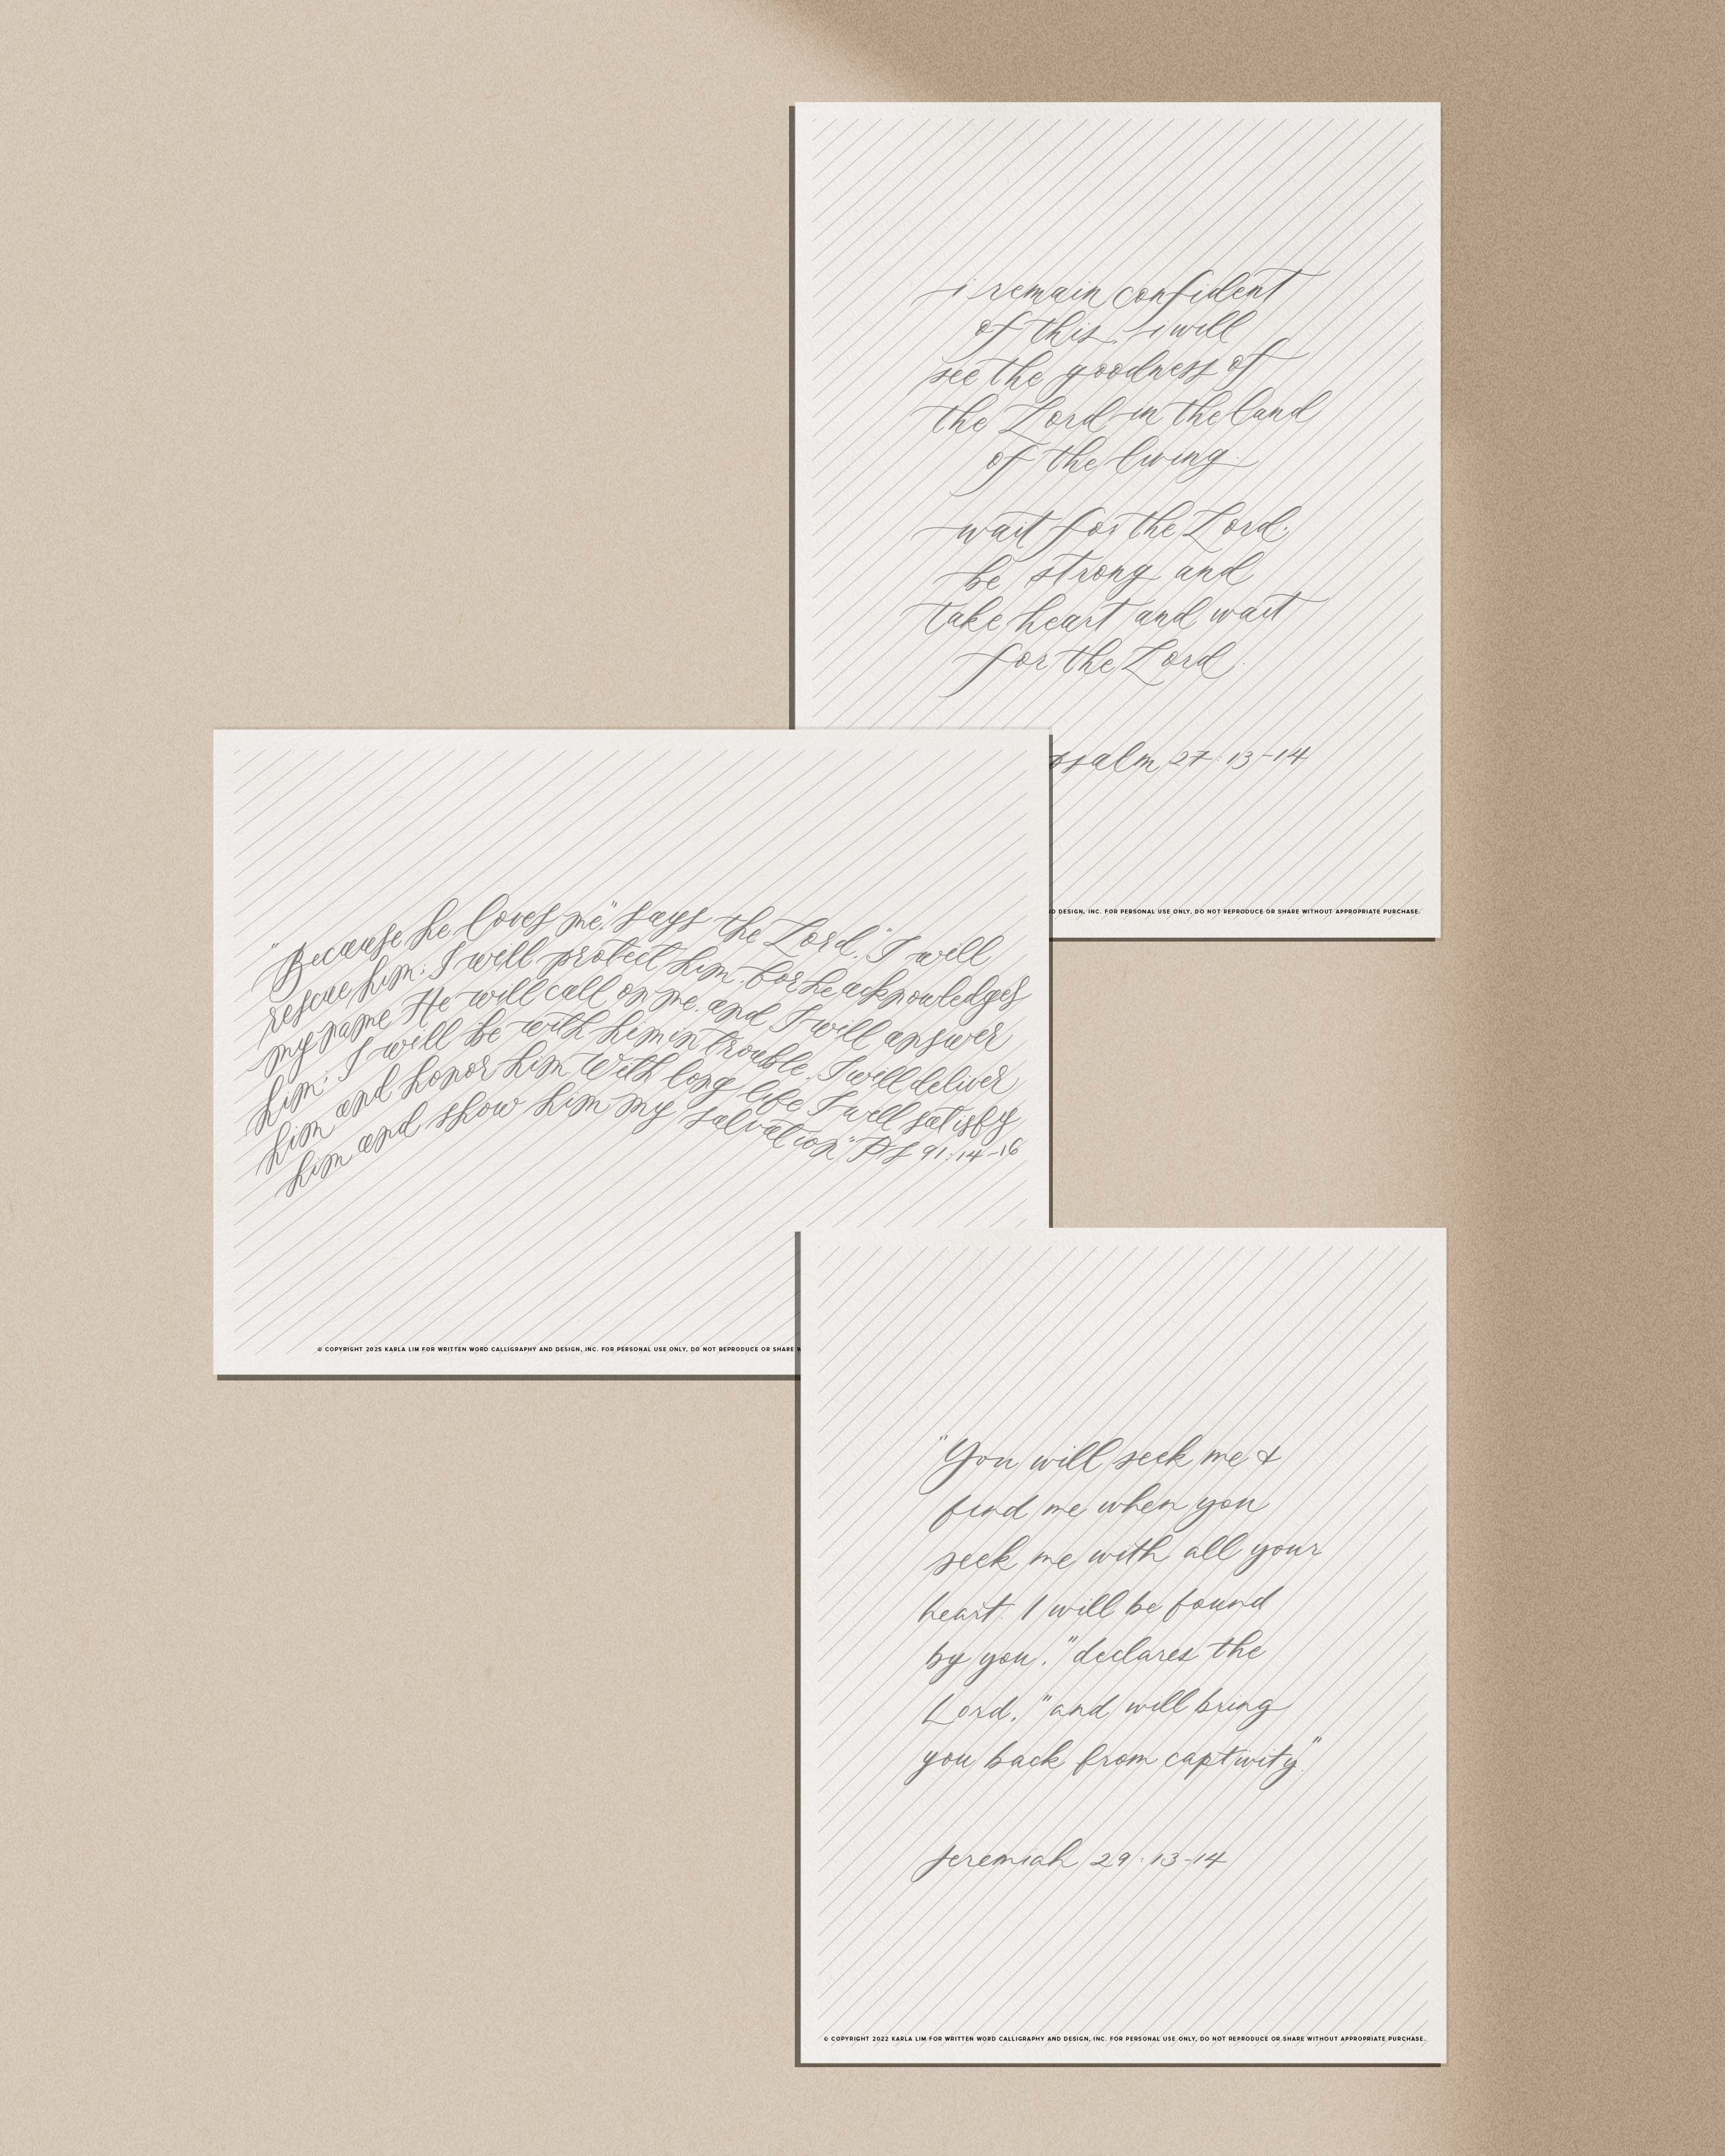 i remain confident
of this: i will
see the goodness of
the Lord in the land
of the living.
wait for the Lord;
be strong and
take heart and wait
for the Lord.
psalm 27:13-14
D DESIGN, INC. FOR PERSONAL USE ONLY, DO NOT REPRODUCE OR SHARE WITHOUT APPROPRIATE PURCHASE.
"Because he loves me," says the Lord, "I will
rescue him; I will protect him, for he acknowledges
my name. He will call on me, and I will answer
him; I will be with him in trouble, I will deliver
him and honor him. With long life I will satisfy
him and show him my salvation." PS 91:14-16
© COPYRIGHT 2025 KARLA LIM FOR WRITTEN WORD CALLIGRAPHY AND DESIGN, INC. FOR PERSONAL USE ONLY, DO NOT REPRODUCE OR SHARE W
"You will seek me &
find me when you
seek me with all your
heart. I will be found
by you," declares the
Lord, "and will bring
you back from captivity."
Jeremiah 29:13-14
© COPYRIGHT 2022 KARLA LIM FOR WRITTEN WORD CALLIGRAPHY AND DESIGN, INC. FOR PERSONAL USE ONLY, DO NOT REPRODUCE OR SHARE WITHOUT APPROPRIATE PURCHASE.